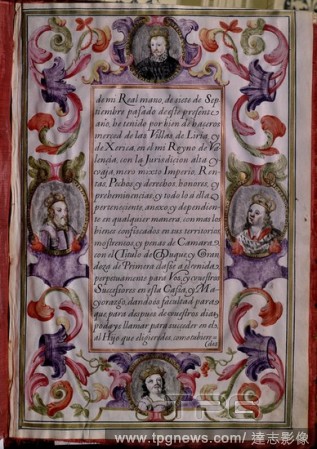 de mi Real mano, de siete de Sep-
tiembre pasado de este presente
año, he tenido por bien de haceros
merced de las Villas de Liria, y
de Xerica, en el mi Reyno de Va-
lencia, con la Jurisdicion alta y
vaja, mero mixto Imperio, Ren-
tas, Pechos, y derechos, honores, y
prehominencias, y todo lo a ella
perteneciente, anexo, y dependien-
te en qualquier manera, con mas los
bienes confiscados en sus territorios
mostrencos, y penas de Camara
con el Titulo de Duque, y Gran-
deza de Primera clase a el unida
perpetuamente para Vos, y vuestros
Succesores en esta Casa, y Ma-
yorazgo, dandoos facultad para
que para despues de vuestros dias
podays llamar para succeder en el
al Hijo que eligieredes, como tubiere=
(des
TPG
www.tpgnews.com/ 達志影像